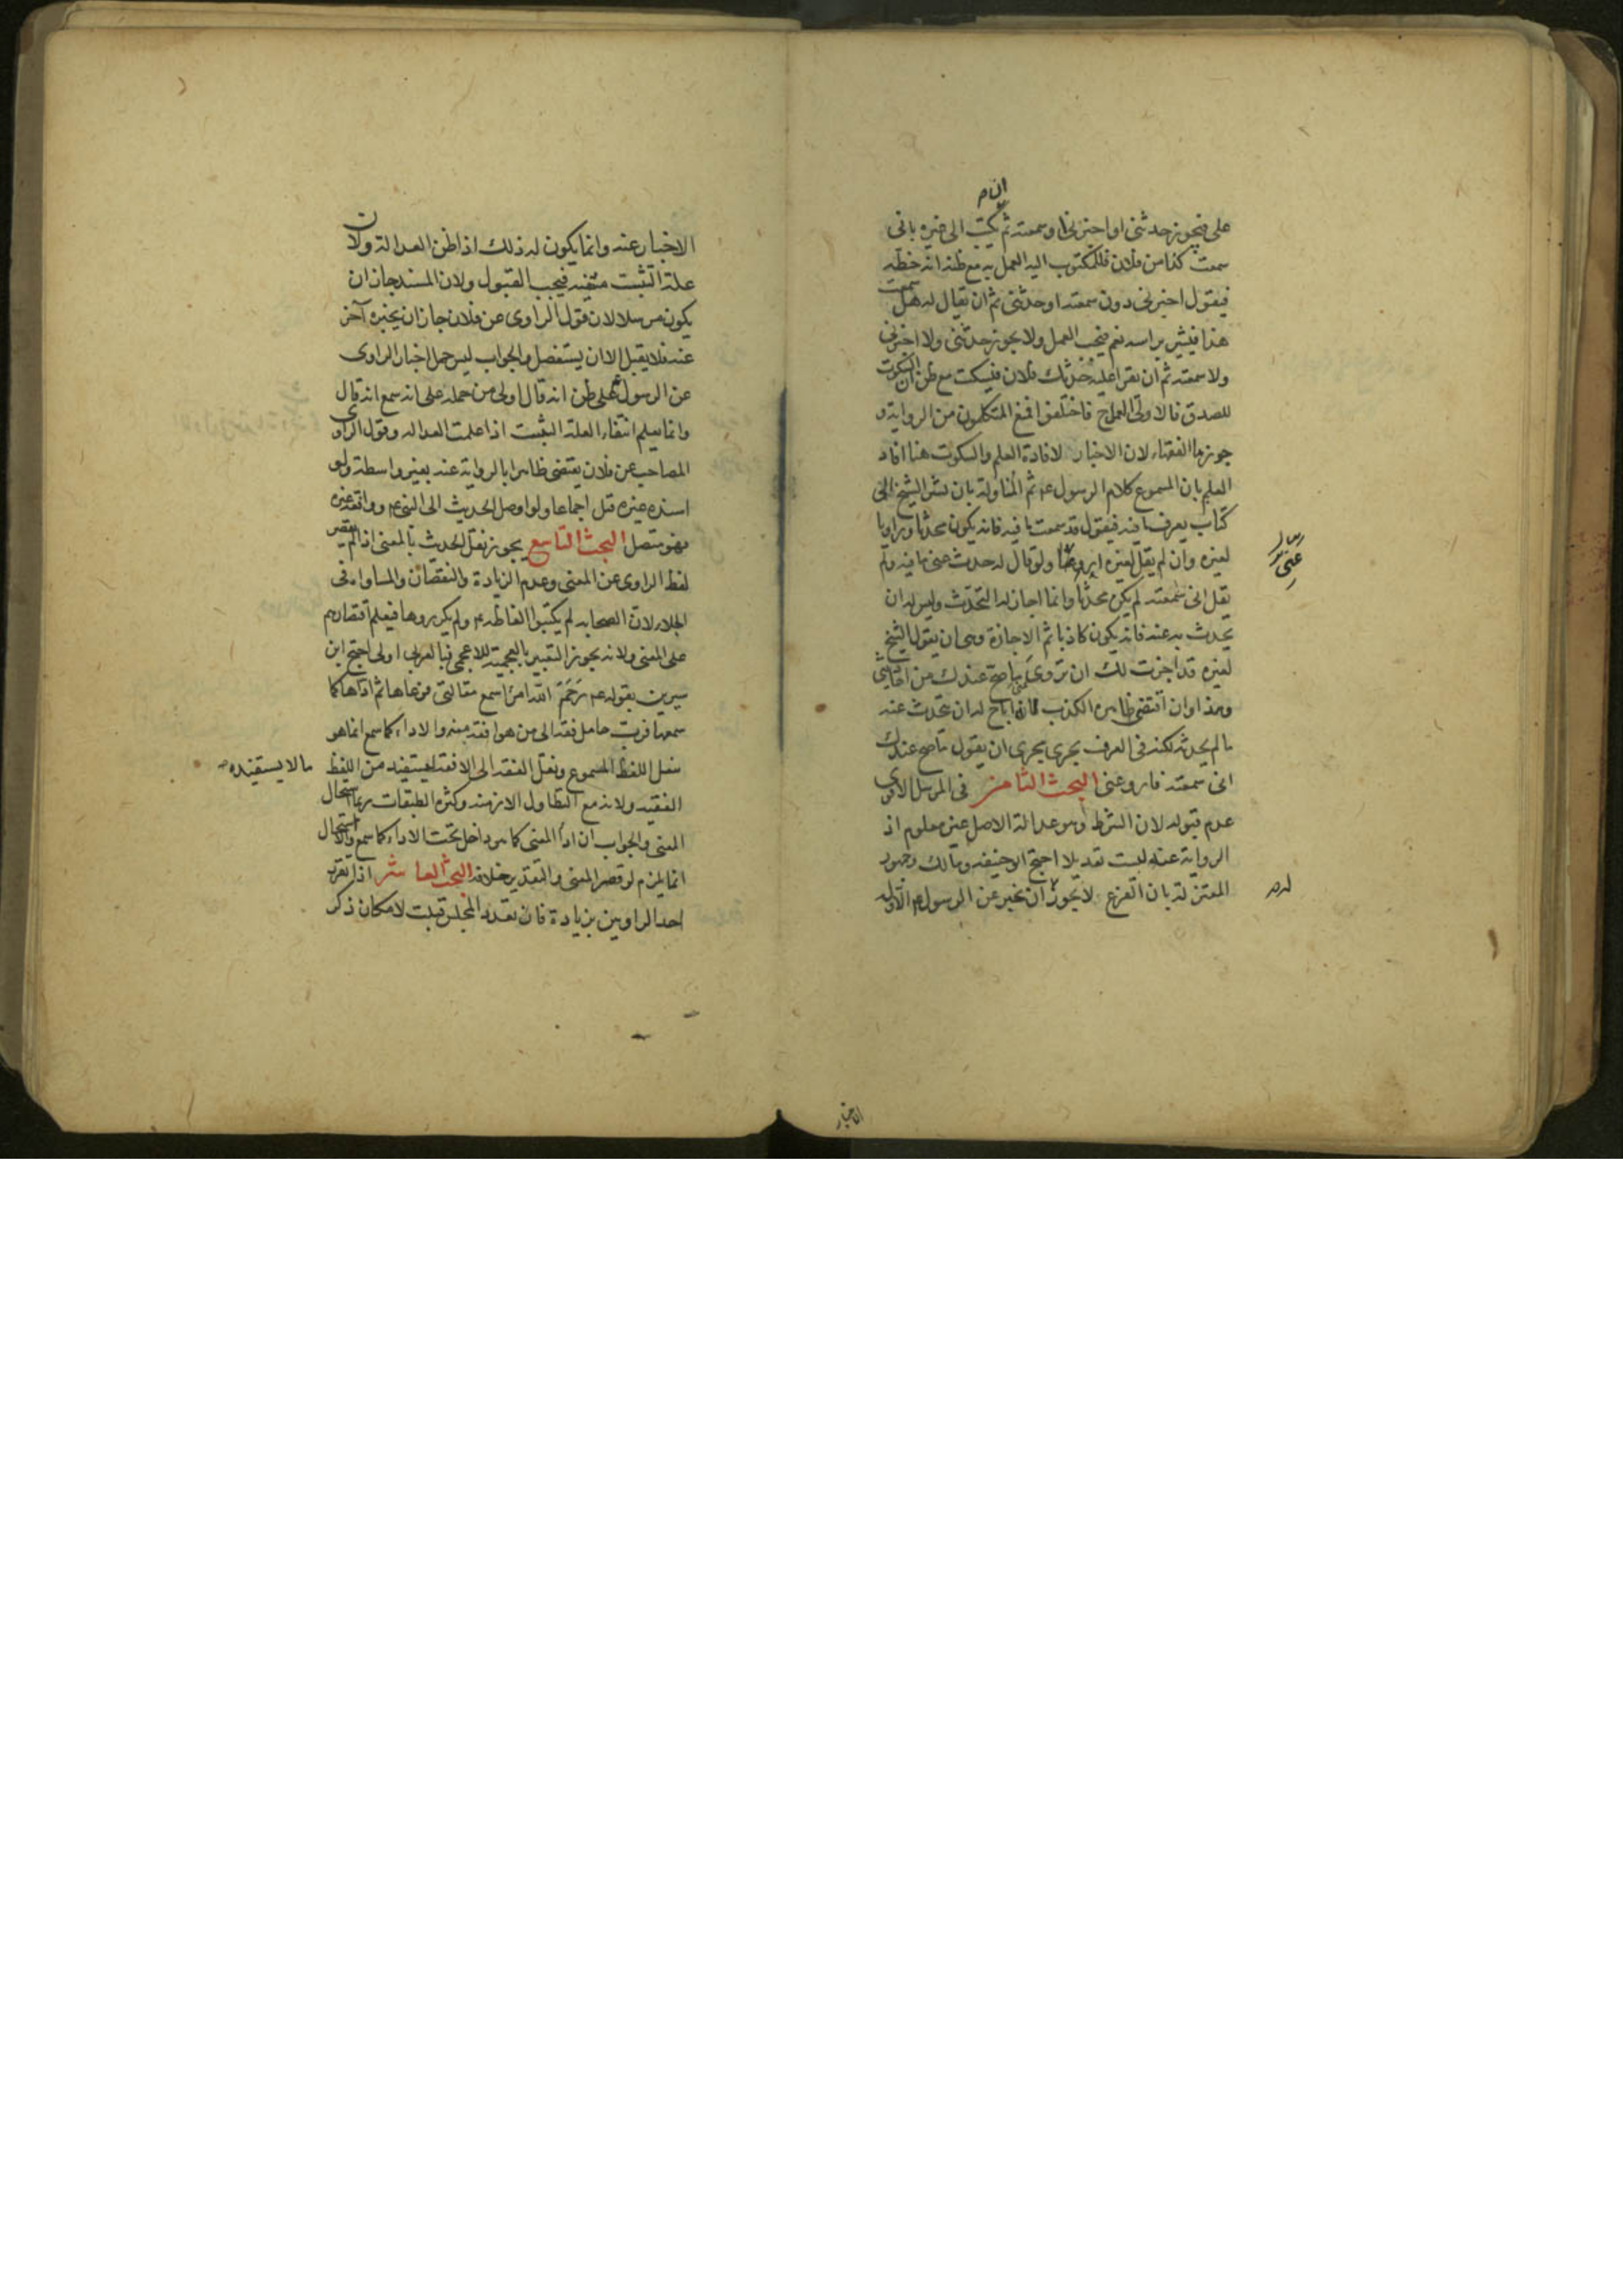 على فيجوز حدثني او اخبرني او سمعته ثم يكتب الى غيره باني
سمعت كذا من فلان فللمكتوب اليه العمل به مع ظنه انه خطه
فيقول اخبرني دون سمعته او حدثني ثم ان يقال له هل سمعت
هذا فيشير براسه نعم فيجب العمل ولا يجوز حدثني ولا اخبرني
ولا سمعته ثم ان يقرا عليه حدثك فلان فيسكت مع ظن ان السكوت
للصدق فالاولى العمل ح فاختلفوا فمنع المتكلمون من الرواية و
جوزها الفقهاء لان الاخبار لافادة العلم والسكوت هنا افاد
العلم بان المسموع كلام الرسول عم ثم المناولة بان يشير الشيخ الى
كتاب يعرف ما فيه فيقول قد سمعت ما فيه فانه يكون محدثا وراويا
لغيره وان لم يقل لغيره اروه ولو قال له حدث عني ما فيه ولم
يقل اني سمعته لم يكن محدثا وانما اجاز له التحدث وليس له ان
يحدث به عنه فانه يكون كاذبا ثم الاجازة وهى ان يقول الشيخ
لغيره قد اجزت لك ان تروى ما صح عندك من احاديثي
وهذا وان اقتضى ظاهره الكذب فانه اباح له ان يتحدث عنه
ما لم يحدثه لكنه في العرف يجرى مجرى ان يقول ما صح عندك
انى سمعته فاروه عنى البحث الثامن في المرسل الاقوى
عدم قبوله لان الشرط وهو عدالة الاصل غير معلوم اذ
الرواية عنه ليست تعديلا احتج ابو حنيفه ومالك وجمهور
المعتزلة بان الفرع لا يجوز ان يخبر عن الرسول عم الا وله
الاخبار
الاخبار عنه وانما يكون له ذلك اذا ظن العدالة ولان
علة التثبت منتفية فيجب القبول ولان المسند جاز ان
يكون مرسلا لان قول الراوى عن فلان جاز ان يخبره آخر
عنه فلا يقبل الا ان يستفصل والجواب ليس حمل اخبار الراوى
عن الرسول عم على ظن انه قال اولى من حمله على انه سمع انه قال
وانما يعلم انتفاء العلة التثبت اذا علمت العداله وقول الراوى
المصاحب عن فلان يقتضى ظاهرا بالرواية عنه بغير واسطة ولو
اسنده غيره قبل اجماعا ولو اوصل الحديث الى النبي عم ووافقه غيره
فهو متصل البحث التاسع يجوز نقل الحديث بالمعنى اذا لم يقصر
لفظ الراوى عن المعنى وعدم الزيادة والنقصان والمساواة فى
الجلاء لان الصحابه لم يكتبوا الفاظه عم ولم يكرروها فيعلم اقتصارهم
على المعنى ولانه يجوز التعبير بالعجمية للاعجمى فبالعربى اولى احتج ابن
سيرين بقوله عم رحم الله امرءا سمع مقالتى فوعاها ثم اداها كما
سمعها فرب حامل فقه الى من هو افقه منه والاداء كما سمع انما هو
بنقل اللفظ المسموع ونقل الفقه الى الافقه ليستفيد من اللفظ ما لا يستفيده
الفقيه ولانه مع التطاول الازمنه وكثرة الطبقات ربما استحال
المعنى والجواب ان اداء المعنى كما هو داخل تحت الاداء كما سمع والاستحال
انما يلزم لو قصر المعنى والتقدير خلافه البحث العاشر اذا تفرد
احد الراويين بزيادة فان تعدد المجلس قبلت لامكان ذكر